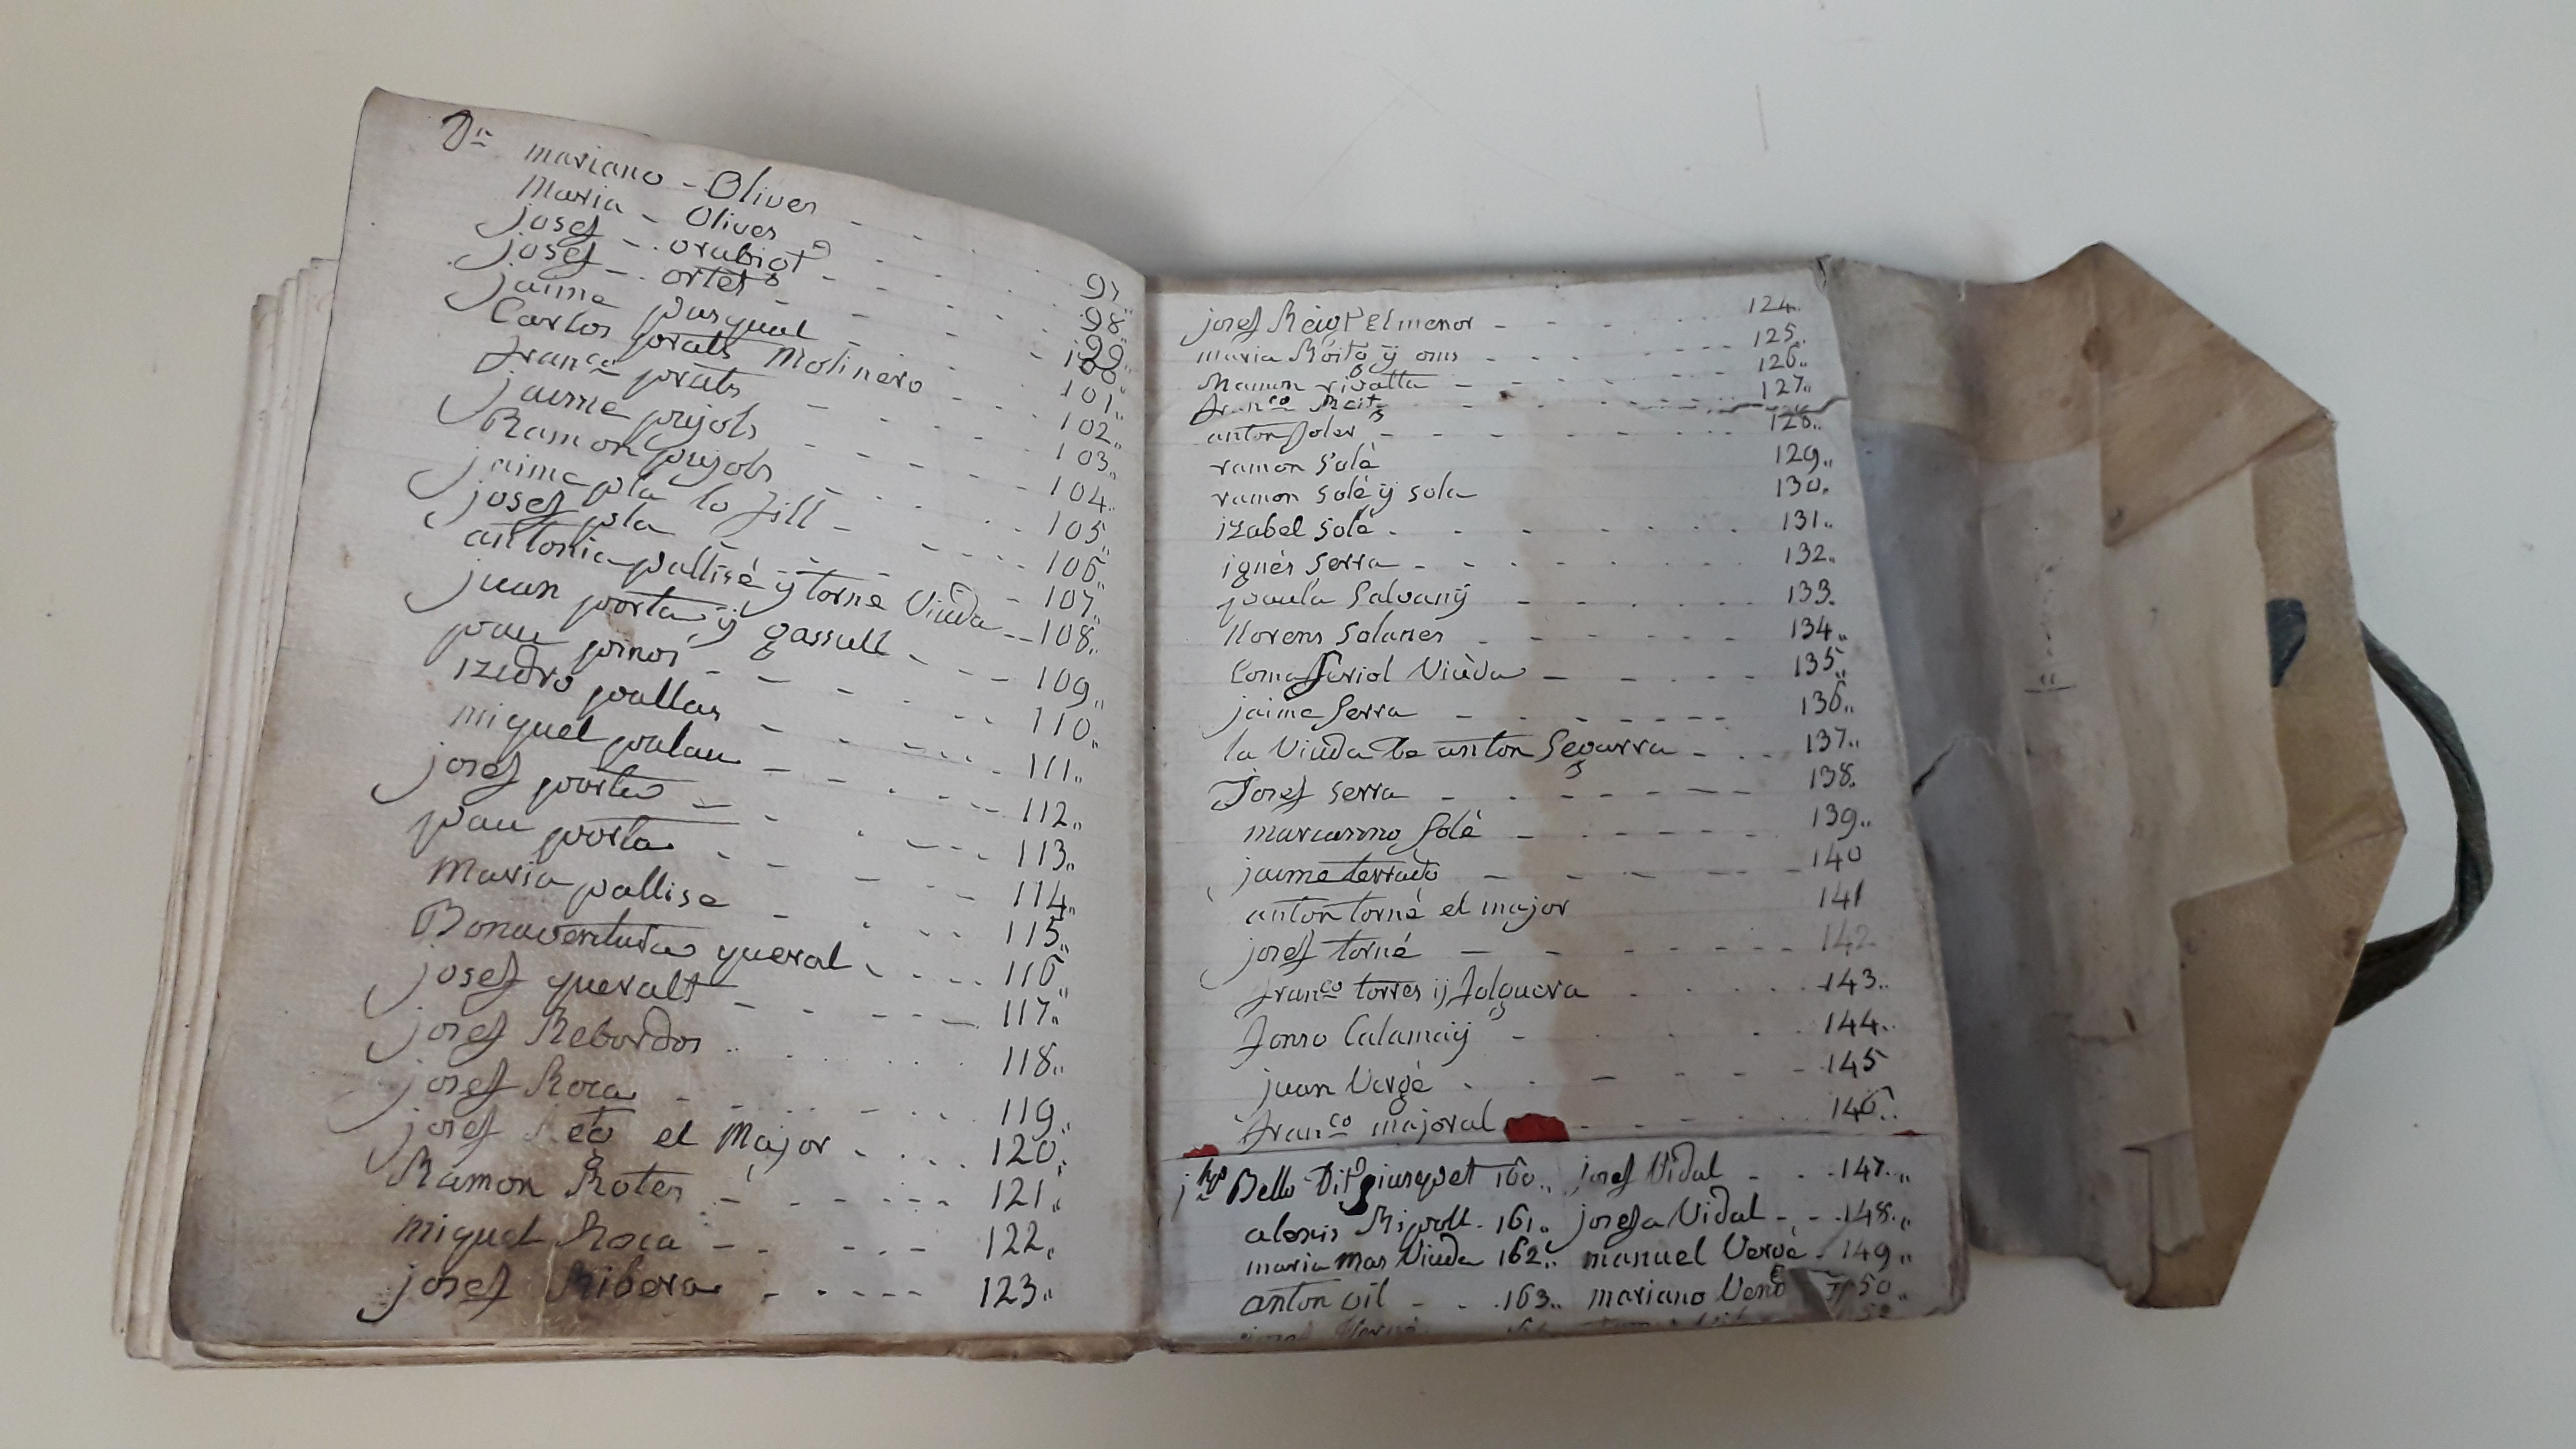 Dn mariano - Oliver - - - 97"
Maria - Oliver - - - 98"
josef - orubigt - - - 99"
josef - ortet - - - 100"
jaime pasqual - - - 101"
Carlos prats Molinero - - - 102"
franco prats - - - 103"
jaume pujols - - - 104"
Ramon pujols - - - 105"
jaime pla lo fill - - - 106"
josef pla - - - 107"
antonia pallisé ÿ torne Viuda - - 108"
juan porta ÿ gassull - - - 109"
pau pinos - - - 110"
izidro pallas - - - 111"
miquel palau - - - 112"
josef porta - - - 113"
pau porta - - - 114"
Maria pallise - - - 115"
Bonaventura queral - - - 116"
josef queralt - - - 117"
josef Rebordos - - - 118"
josef Roca - - - 119"
josef el Major - - - 120"
Ramon Roter - - - 121"
miquel Roca - - - 122"
josef Ribera - - - 123"
josef Reigt el menor - - - 124"
maria ÿ oms - - - 125"
Ramon rigatta - - - 126"
franco - - - 127"
anton Soler - - - 128"
ramon Solé 129"
ramon solé ÿ sola 130"
izabel solé - - - 131"
ignés serra - - - 132"
paula Salvanÿ - - - 133"
llorens Solanes - - - 134"
Coma Seriol Viuda - - - 135"
jaime Serra - - - 136"
la Viuda de anton Segarra - - - 137"
Josef serra - - - 138"
marianno Solé - - - 139"
jaume terrado - - - 140
anton torné el major 141
josef torné - - - 142
franco torres ÿ folguera - - - 143"
fonso Calamaÿ - - - 144"
juan Vergé - - - 145
franco majoral - - - 146"
jph Bello Dit giusepet 160" josef Vidal - - - 147"
alexis Ripoll - 161" josefa Vidal - - - 148"
maria mas Viuda 162" manuel Vergé - 149"
anton gil - - 163" mariano 150"